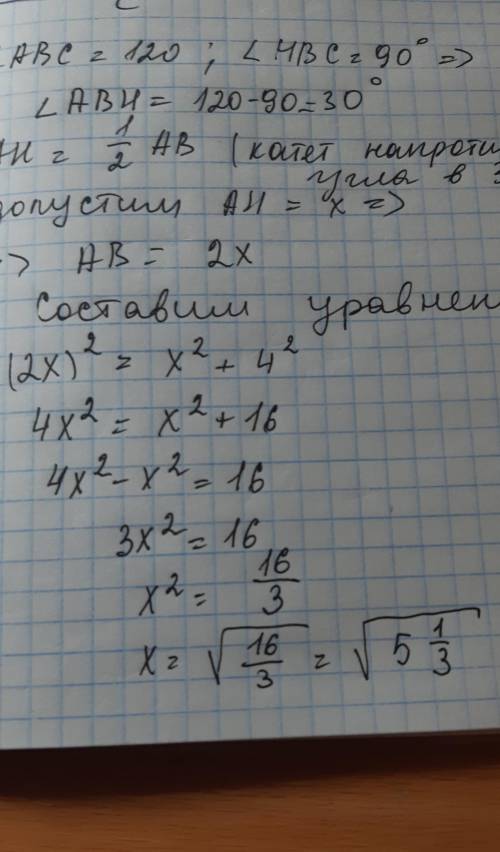 ABC = 120 ; ∠HBC = 90° =>
∠ABH = 120-90=30°
AH = 1/2 AB (катет напроти
угла в 3
допустим AH = x =>
=> AB = 2x
Составим уравнен
(2x)² = x² + 4²
4x² = x² + 16
4x² - x² = 16
3x² = 16
x² = 16/3
x = √16/3 = √5 1/3